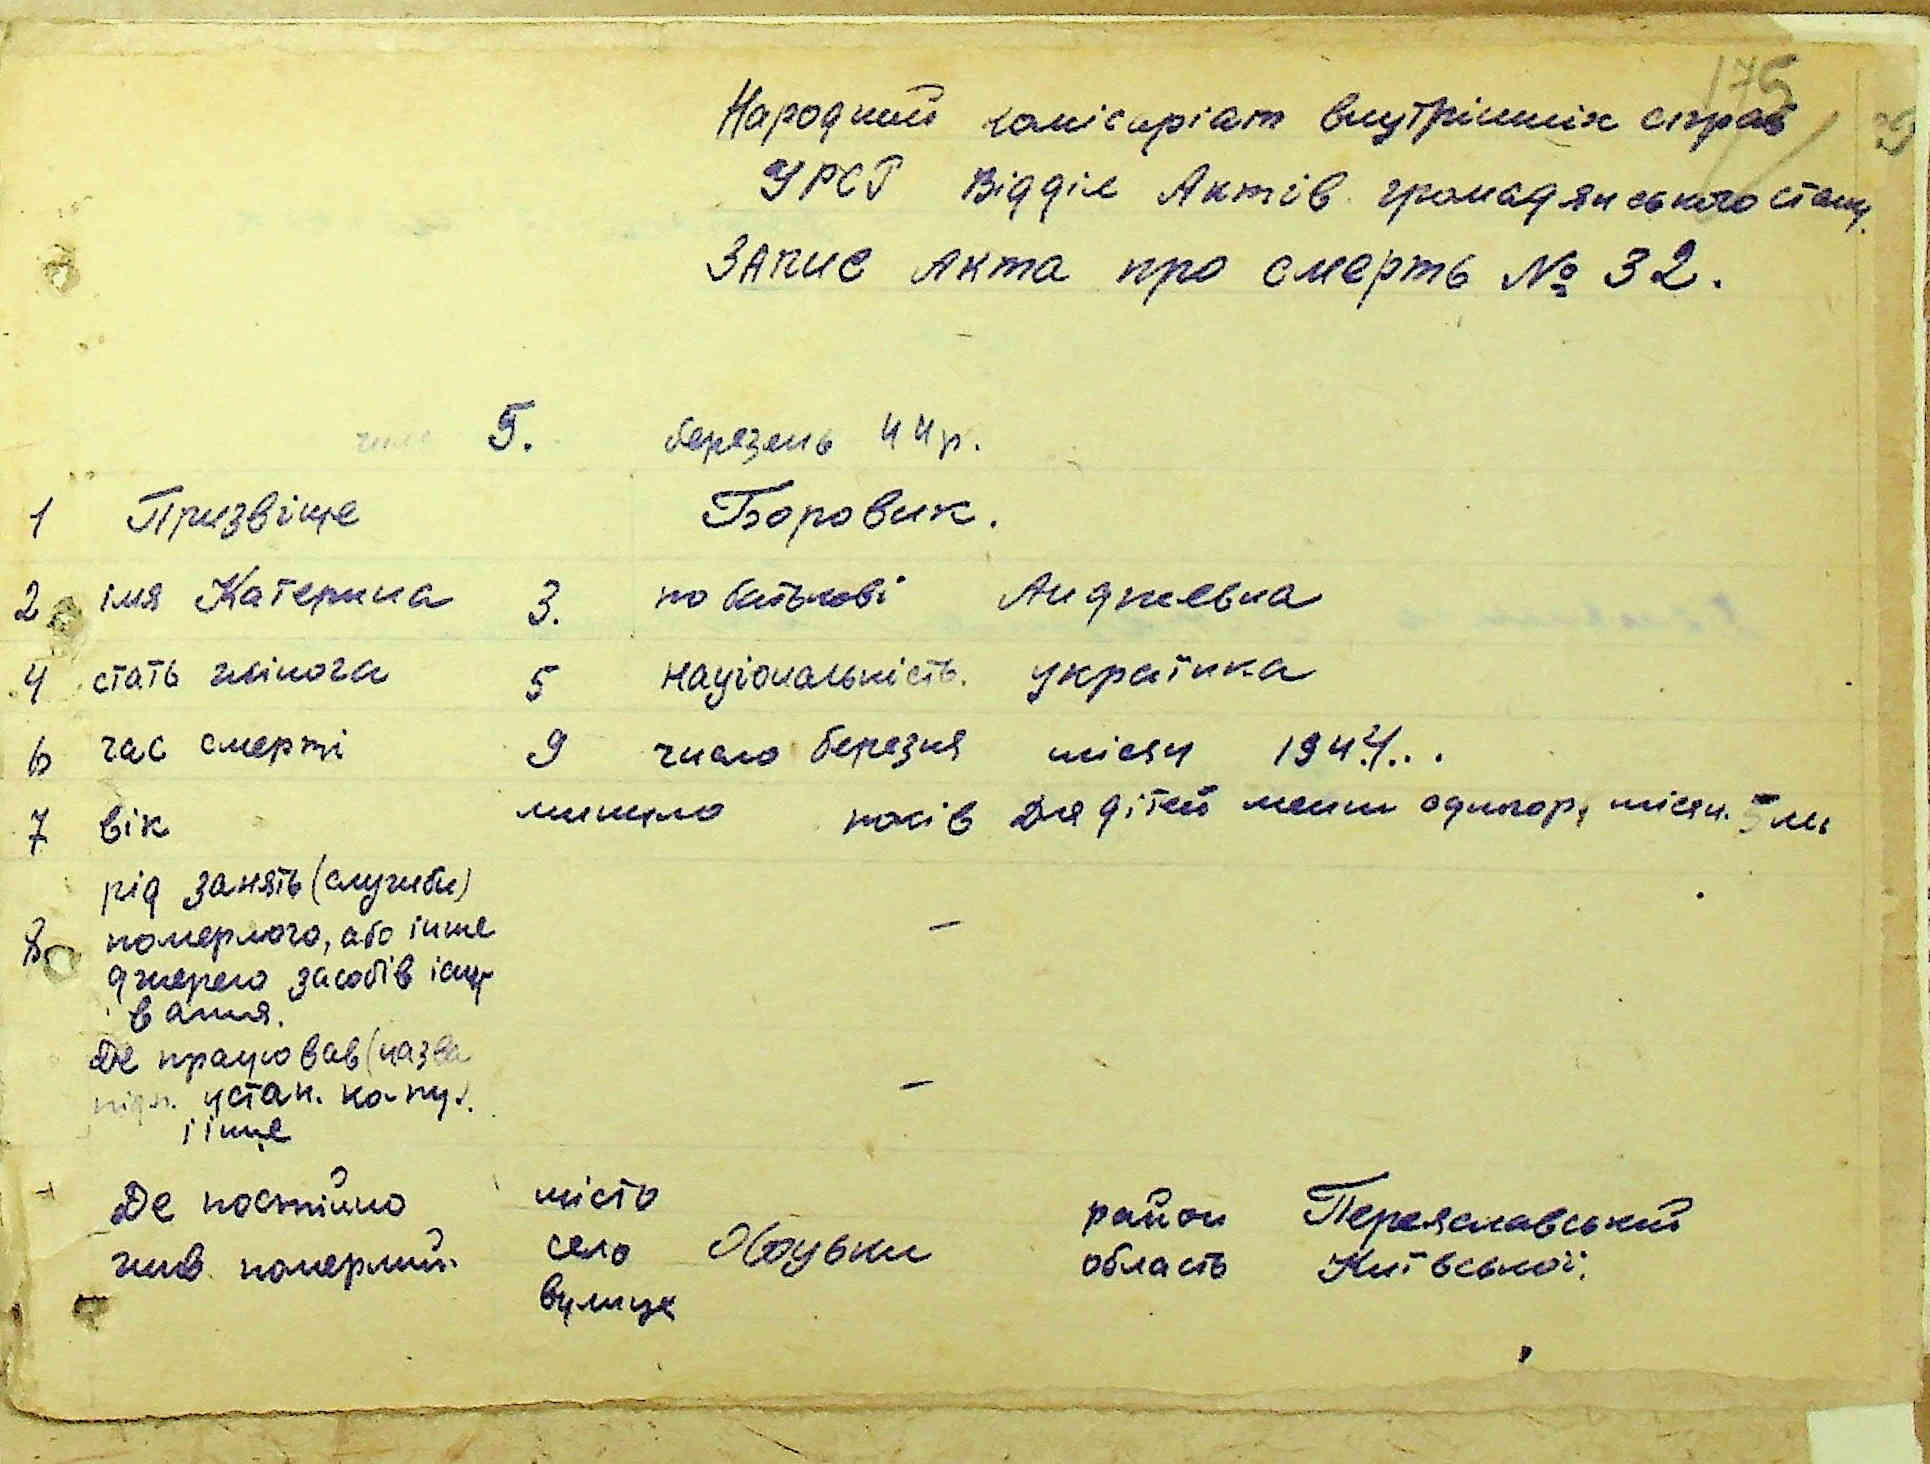 175
Народний комісаріат внутрішніх справ
УРСР Відділ Актів громадянського стану.
Запис Акта про смерть № 32.
число 5. березень 44 р.
1 Призвіще Боровик.
2 імя Катерина 3. по батькові Андреевна
4 стать жіноча 5 національність. українка
6 час смерті 9 число березня місяц 1944..
7 вік минуло років Для дітей менш одного р. місяц. 5 м.
рід занять (служби)
8 померлого, або інше –
джерело засобів існу
вання.
Де працював (назва
підп. устан. –
і інше
Де постійно місто район Переяславський
жив померлий. село область Київської.
вулиця